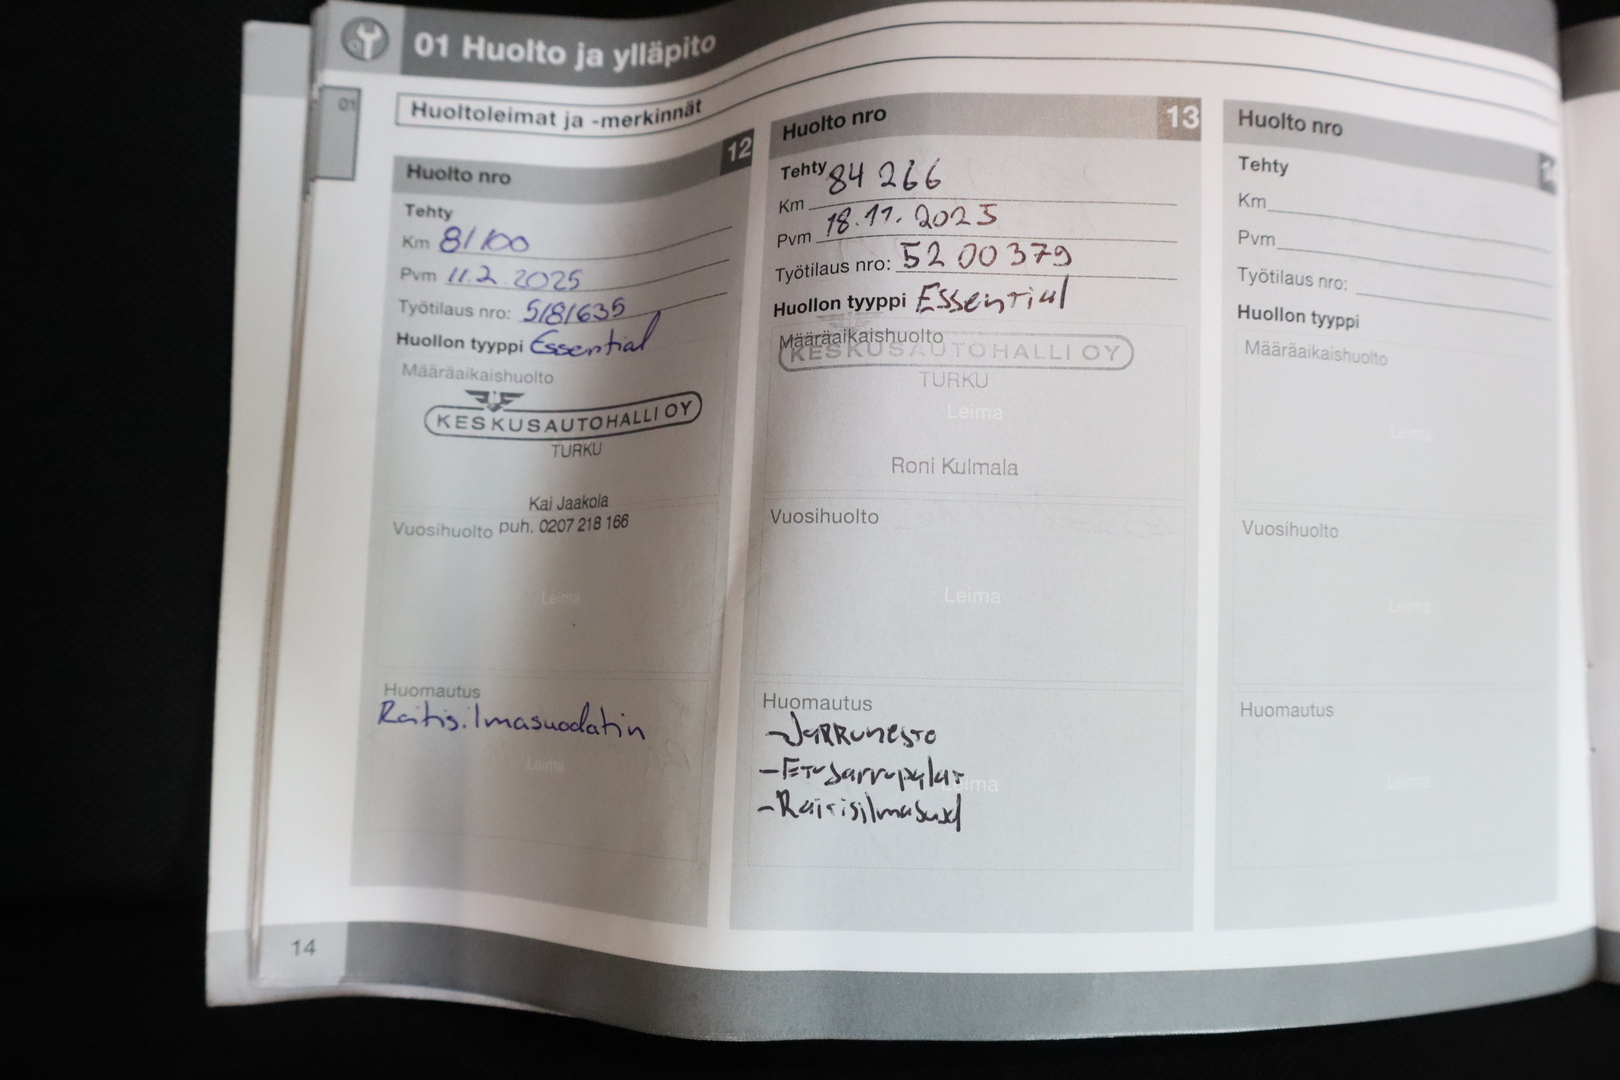 01 Huolto ja ylläpito
01
Huoltoleimat ja -merkinnät
12
Huolto nro
Tehty
Km 81100
Pvm 11.2.2025
Työtilaus nro: 5181635
Huollon tyyppi Essential
Määräaikaishuolto
KESKUSAUTOHALLI OY
TURKU
Kai Jaakola
Vuosihuolto puh. 0207 218 166
Leima
Huomautus
Raitis.ilmasuodatin
Leima
Huolto nro 13
Tehty
Km 84 266
Pvm 18.11.2025
Työtilaus nro: 5200379
Huollon tyyppi Essential
Määräaikaishuolto
KESKUSAUTOHALLI OY
TURKU
Leima
Roni Kulmala
Vuosihuolto
Leima
Huomautus
-Jarruneste
-Etujarrupalat
Leima
-Raitisilmasuod
Huolto nro
Tehty
Km
Pvm
Työtilaus nro:
Huollon tyyppi
Määräaikaishuolto
Leima
Vuosihuolto
Leima
Huomautus
Leima
14